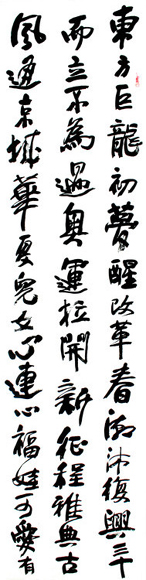 東方巨龍初夢醒改革春潮沛復興三十
而立不為過奧運拉開新征程雅典古
風通京城華夏兒女心連心福娃可愛有